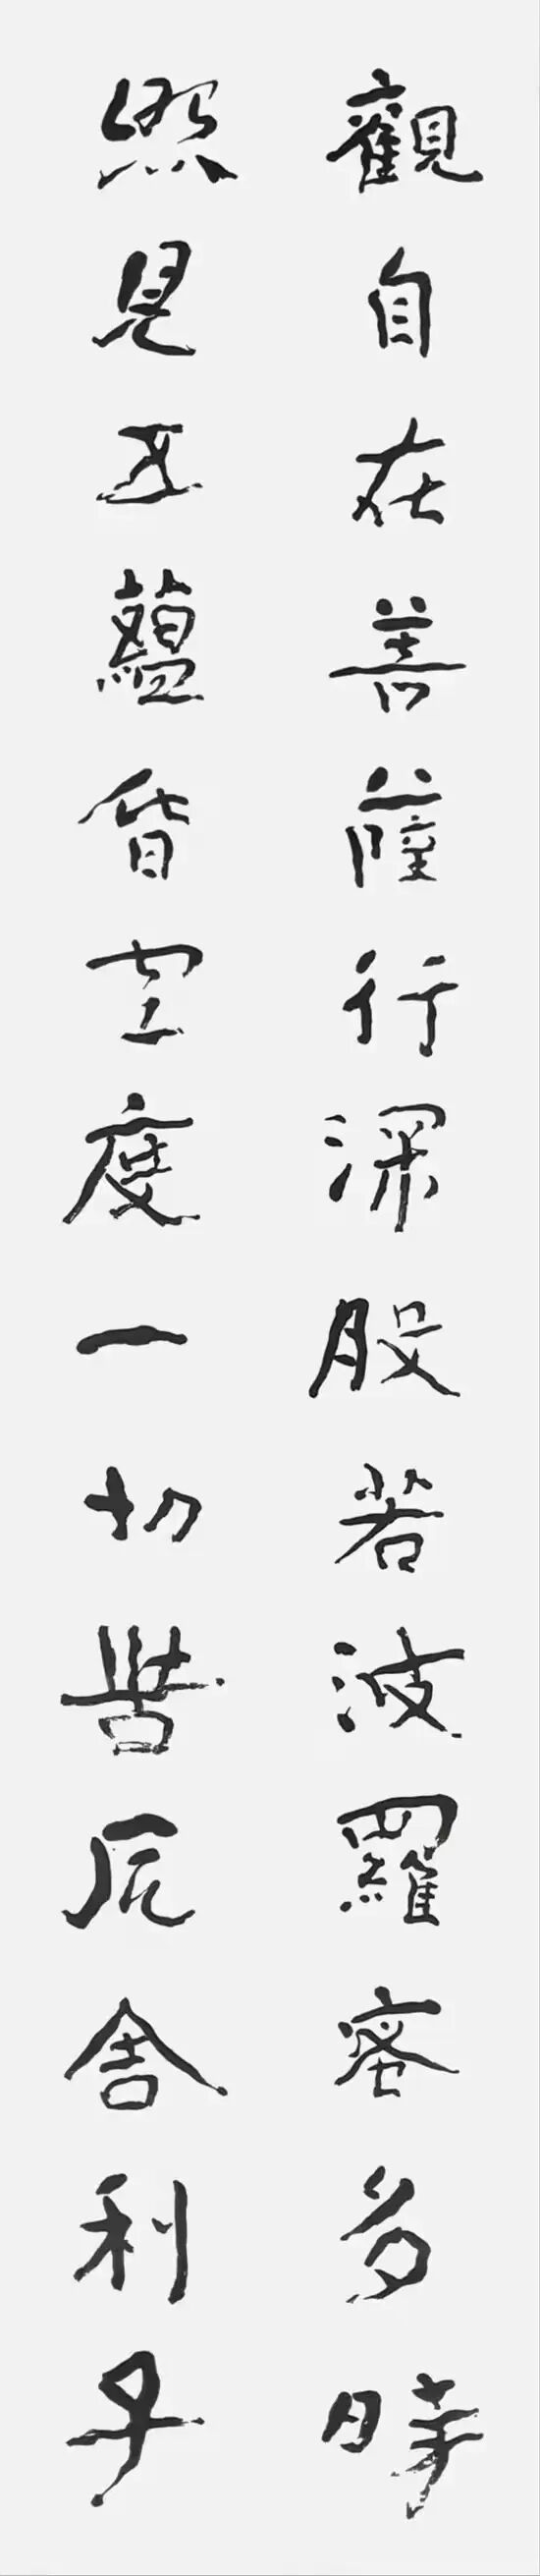 觀自在菩薩行深般若波羅蜜多時
照見五蘊皆空度一切苦厄舍利子